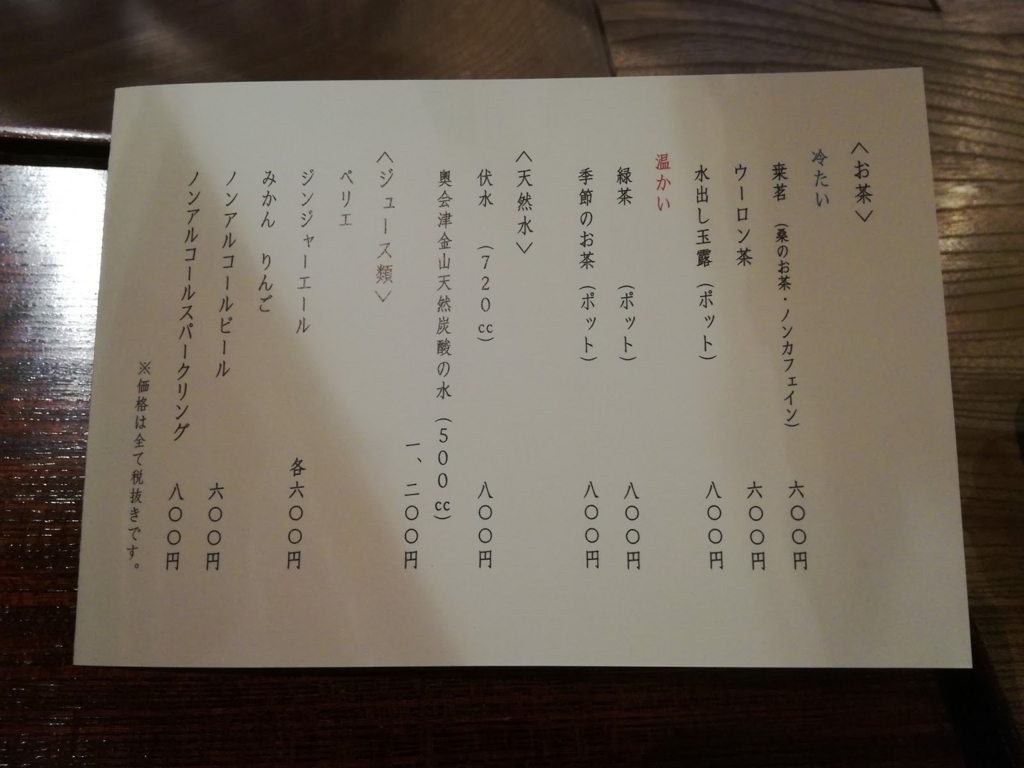 〈お茶〉
冷たい
桒茗 (桑のお茶・ノンカフェイン) 六〇〇円
ウーロン茶 六〇〇円
水出し玉露 (ポット) 八〇〇円
温かい
緑茶 (ポット) 八〇〇円
季節のお茶 (ポット) 八〇〇円
〈天然水〉
伏水 (720cc) 八〇〇円
奥会津金山天然炭酸の水 (500cc)
一、二〇〇円
〈ジュース類〉
ペリエ
ジンジャーエール 各六〇〇円
みかん りんご
ノンアルコールビール 六〇〇円
ノンアルコールスパークリング 八〇〇円
※価格は全て税抜きです。